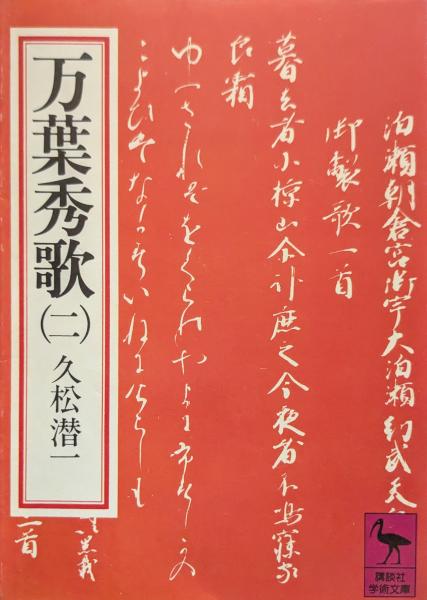 万葉秀歌(二)
久松潜一
泊瀬朝倉宮御宇大泊瀬幼武天
御製歌一首
暮去者小椋山尓臥鹿之今夜者不鳴寐家
良霜
ゆふされはをくらのやまにふすしかの
こよひはなかすいねにけらしも
一首
講談社
学術文庫